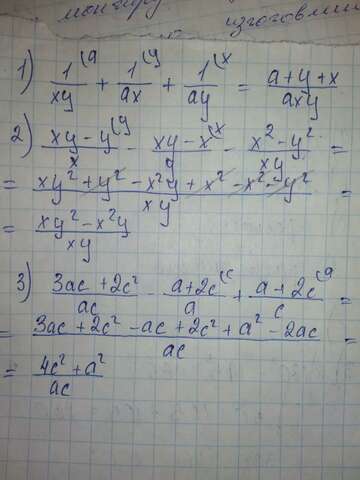 изготовли
1) 1/xy (a + 1/ax (y + 1/ay (x = a+y+x/axy
2) xy-y/x (y - xy-x/y (x - x²-y²/xy =
= xy²+y²-x²y+x²-x²-y²/xy =
= xy²-x²y/xy
3) 3ac+2c²/ac - a+2c/a (c + a+2c/c (a =
= 3ac+2c²-ac+2c²+a²-2ac/ac =
= 4c²+a²/ac